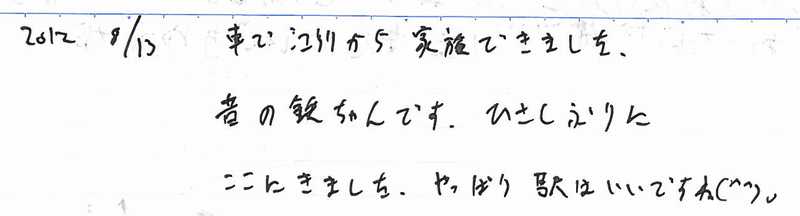 2012. 8/13 車で江別から家族できました。
昔の鉄ちゃんです。ひさしぶりに
ここにきました。やっぱり駅はいいですね(^^)。